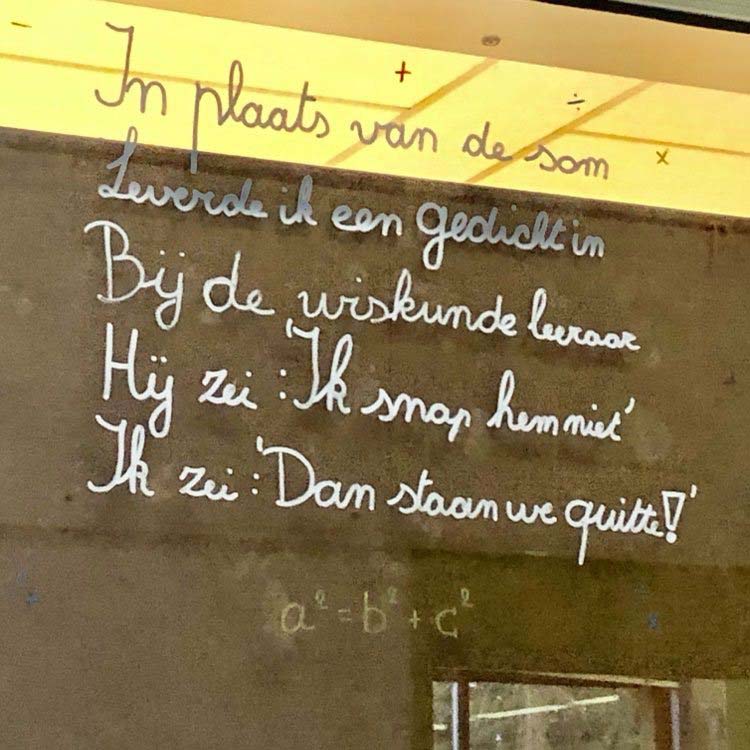 In plaats van de som
Leverde ik een gedicht in
Bij de wiskunde leeraar
Hij zei : 'Ik snap hem niet'
Ik zei : 'Dan staan we quitte!'
a² = b² + c²